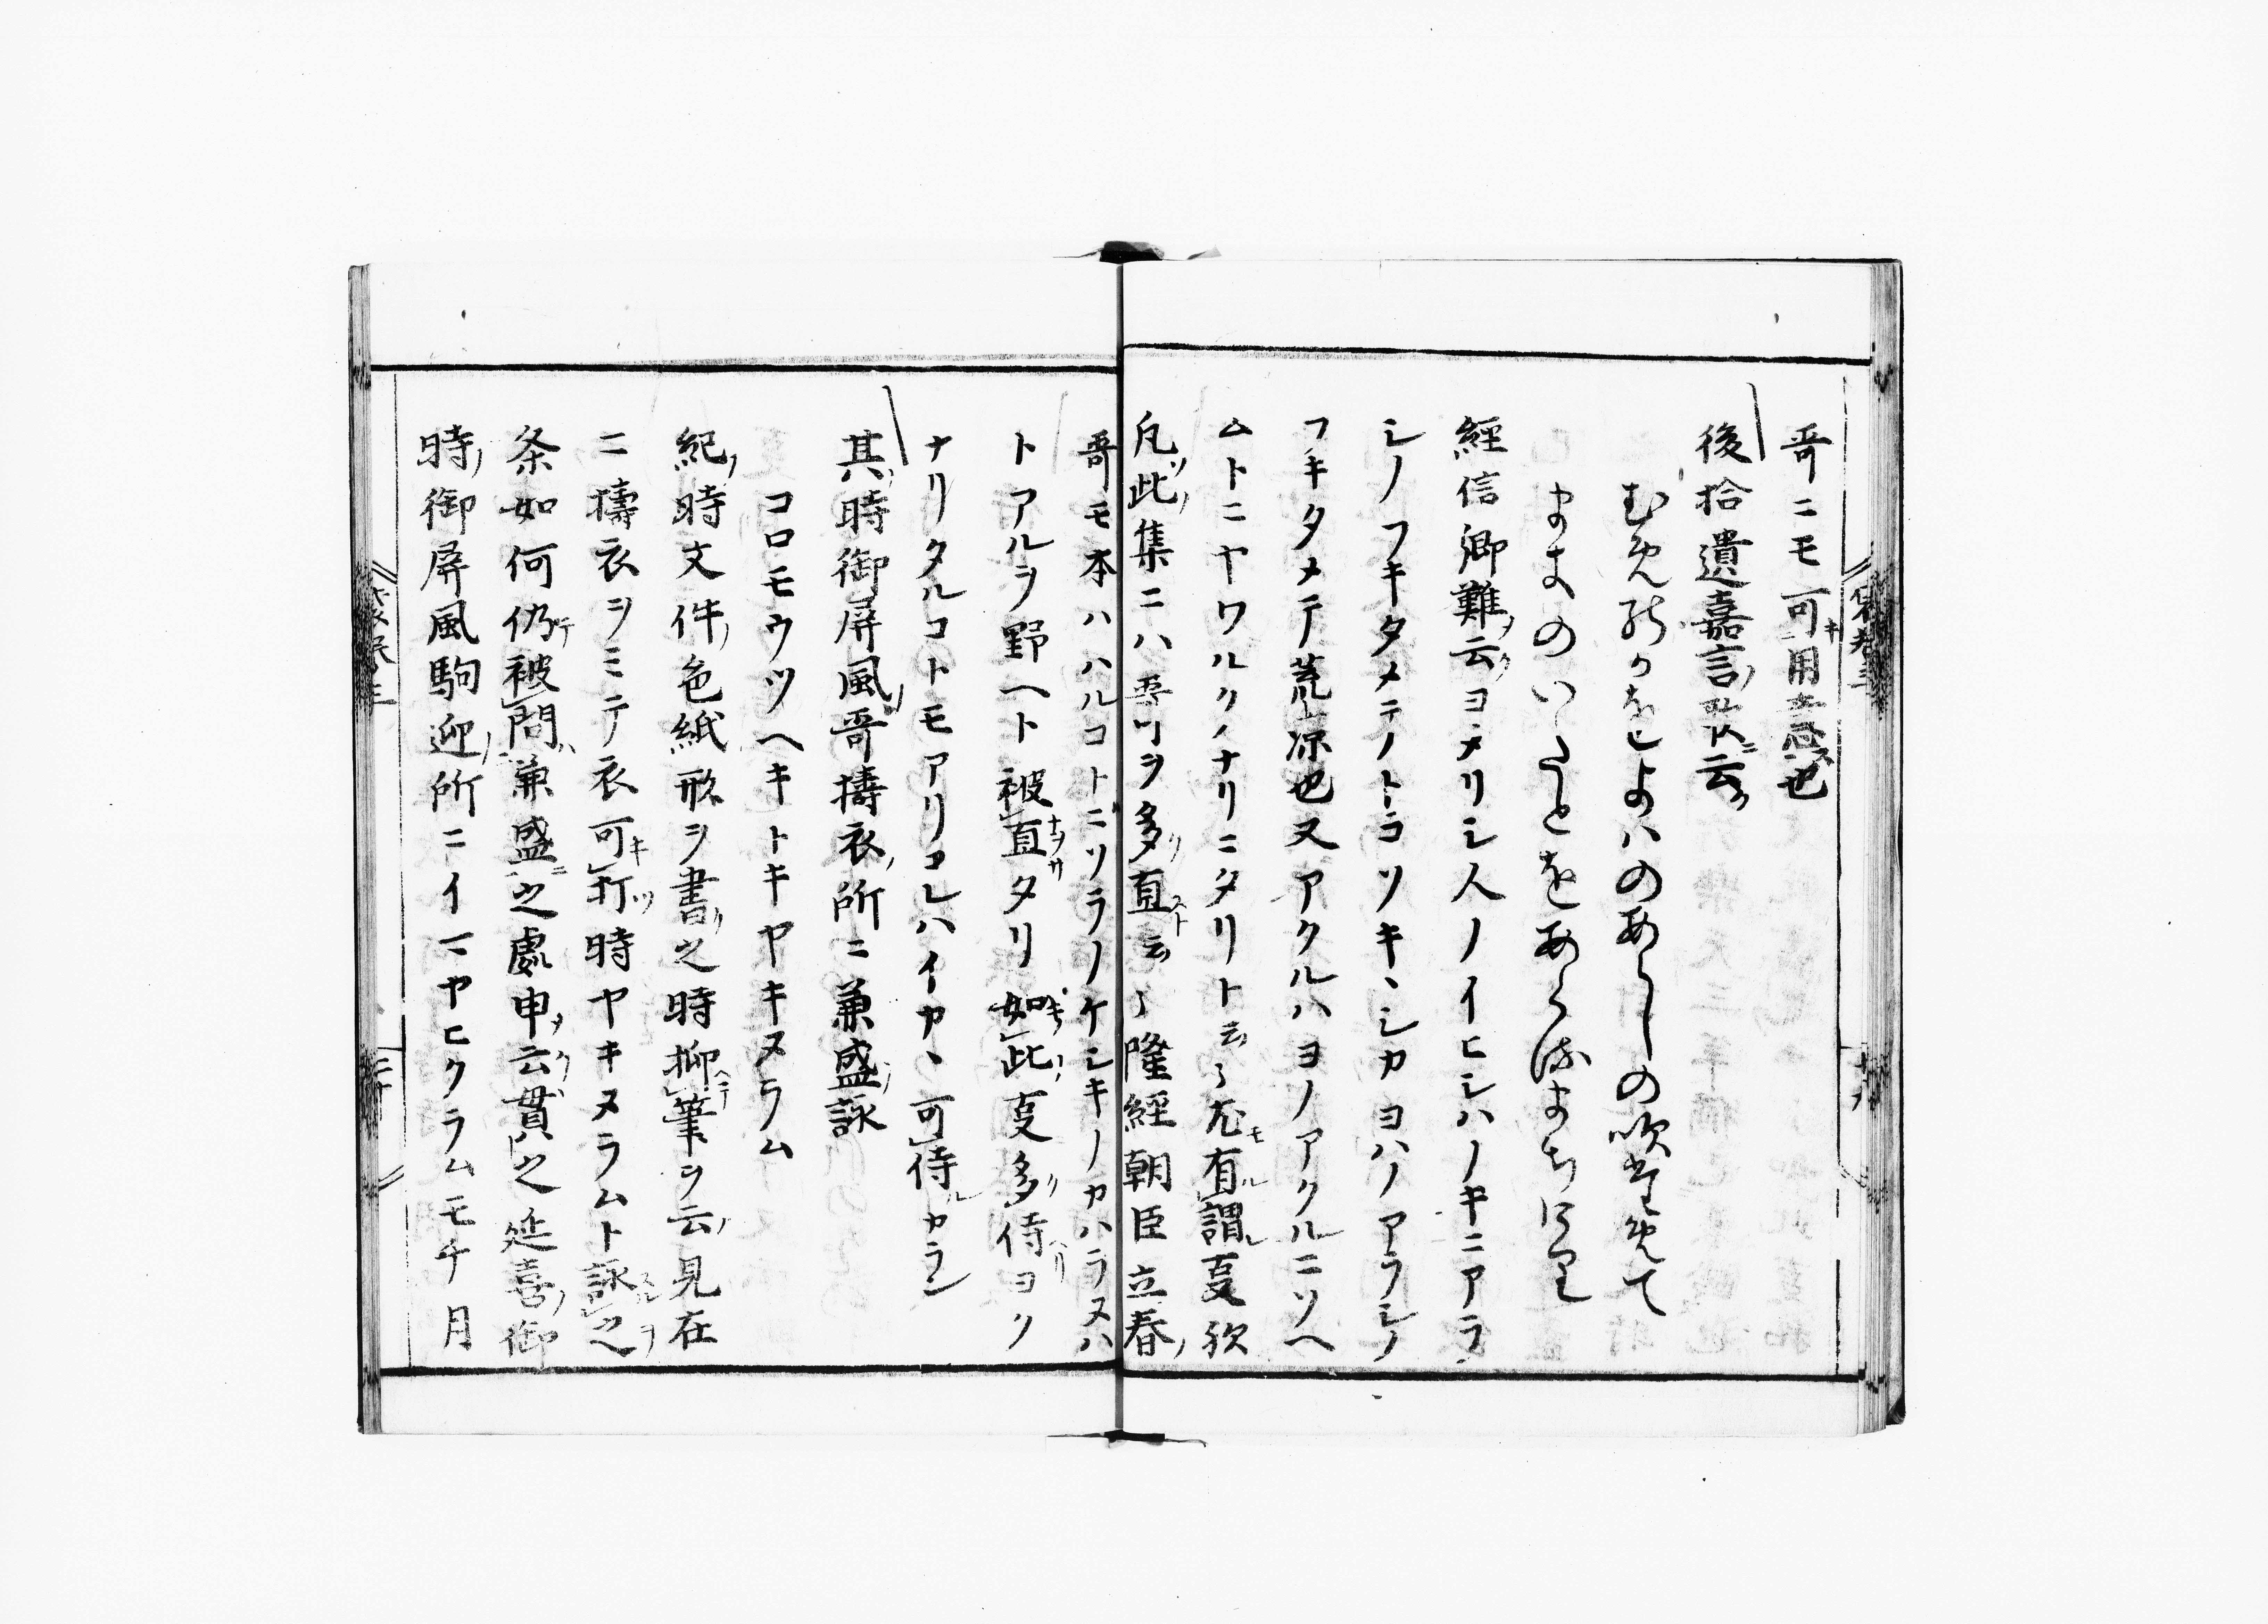 哥ニモ可キ用意ス也
後拾遺嘉言歌ニ云
むめのかをよはのあらしの吹ためて
まきのいたとをあくるまちけり
經信卿難ヲ云クヨメリシ人ノイヒシハノキニアラ
シノフキタメテノトコソキヽシカヨハノアラシノ
フキタメテ荒凉也又アクルハヨノアクルニソヘ
ムトニヤワルクナリニタリト云々尤モ有ル謂レ夏歟
凡ソ此ノ集ニハ哥ヲ多ク直スト云々隆經朝臣立春ノ
哥モ本ハハルコトニソラノケシキノカハラヌハ
トアルヲ野ヘト被直ナヲサタリ如キ此ノ夏多ク侍ハリヨク
ナリタルコトモアリコレハイカヽ可待ルカラン
其ノ時御屏風ノ哥擣衣ノ所ニ兼盛ノ詠
コロモウツヘキトキヤキヌラム
紀ノ時文件ノ色紙形ヲ書クノ之時抑ヘテ筆ヲ云ク見在
ニ擣衣ヲミテ衣可キ打ツ時ヤキヌラムト詠スルヲ之
条如何仍テ被問ハ兼盛ニ之處申ヲ云ク貫之延喜ノ御
時ノ御屏風駒迎ノ所ニイマヤヒクラムモチ月